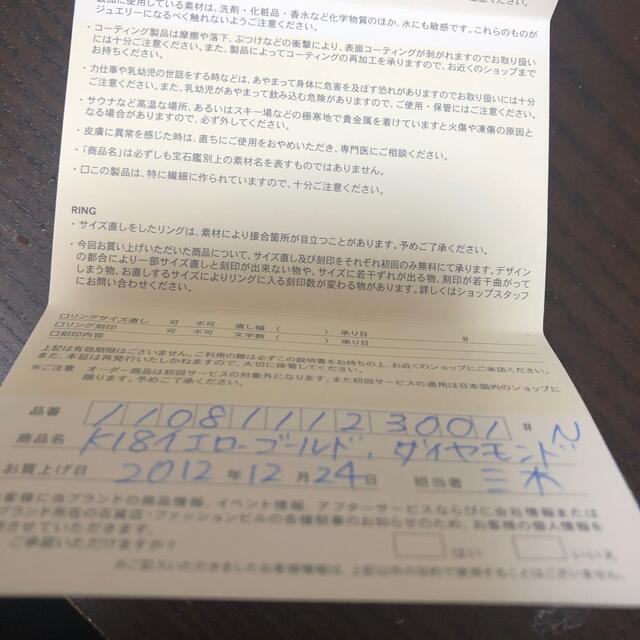 製品に使用している素材は、洗剤・化粧品・香水など化学物質のほか、水にも敏感です。これらのものが
ジュエリーになるべく触れないようご注意ください。
・コーティング製品は摩擦や落下、ぶつけなどの衝撃により、表面コーティングが剥がれますのでお取り扱い
には十分ご注意ください。また、製品によってコーティングの再加工を承りますので、お近くのショップまで
お持ちください。
・力仕事や乳幼児の世話をする時などは、あやまって身体に危害を及ぼす恐れがありますのでお取り扱いには十分
ご注意ください。また、乳幼児があやまって飲み込む危険がありますので、ご使用・保管にはご注意ください。
・サウナなど高温な場所、あるいはスキー場などの極寒地で貴金属を着けていますと火傷や凍傷の原因と
なる場合がありますので、必ず外してください。
・皮膚に異常を感じた時は、直ちにご使用をおやめいただき、専門医にご相談ください。
・「商品名」は必ずしも宝石鑑別上の素材名を表すものではありません。
・□この製品は、特に繊細に作られていますので、十分ご注意ください。
RING
・サイズ直しをしたリングは、素材により接合箇所が目立つことがあります。予めご了承ください。
・今回お買い上げいただいた商品について、サイズ直し及び刻印をそれぞれ初回のみ無料にて承ります。デザイン
の都合により一部サイズ直しと刻印が出来ない物や、サイズに若干ずれが出る物、刻印が若干曲がって
しまう物、お直しするサイズによりリングに入る刻印数が変わる物があります。詳しくはショップスタッフ
にお問い合わせください。
□リングサイズ直し 可 不可 直し幅 ( ) 承り日 #
□リング刻印 可 不可 文字数 ( ) 承り日
□刻印内容
上記は有効期限はございません。ご利用の際は必ずこの説明書をお持ちの上、お近くのショップにご来店ください。
また、本証は再発行いたしかねますので、大切に保管してください。
※ご注意 オーダー商品は初回サービスの対象外になります。また初回サービスの適用は日本国内のショップに
限ります。予めご了承ください。
品番 1108111123001 # N
商品名 K18イエローゴールド、ダイヤモンド
お買上げ日 2012 年 12 月 24 日 担当者 三木
お客様に当ブランドの商品情報、イベント情報、アフターサービスならびに会社情報または
ブランド所在の百貨店・ファッションビルの各種催事のお知らせのため、お客様の個人情報を
させていただきます。
ご承諾いただけますか? □ はい □ いいえ
※ご記入いただきましたお客様情報は、上記以外の目的で使用することはございません。